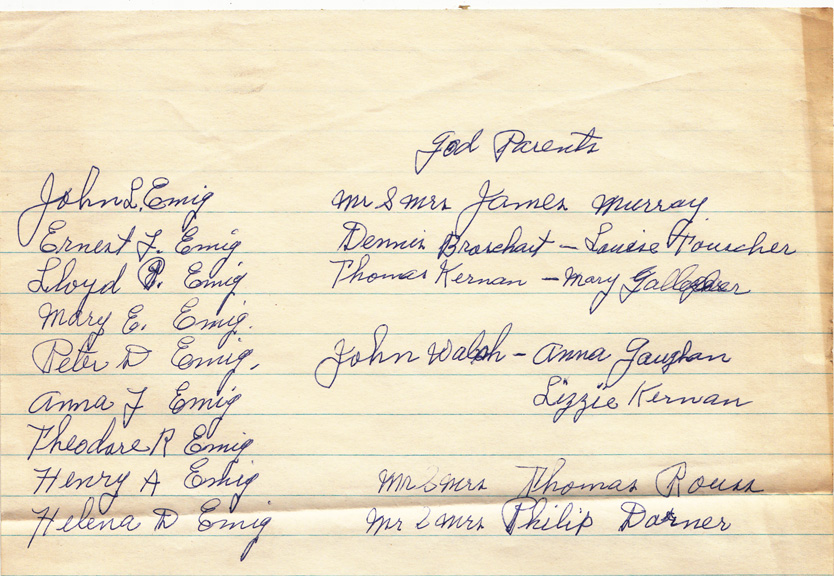 God Parents
John L. Emig Mr & Mrs James Murray
Ernest F. Emig Dennis Broschart - Louise Touscher
Lloyd P. Emig Thomas Kernan - Mary Gallagher
Mary E. Emig.
Peter D Emig. John Walsh - Anna Gaughan
Anna F Emig Lizzie Kernan
Theodore R Emig
Henry A Emig Mr & Mrs Thomas Rouss
Helena D Emig Mr & Mrs Philip Dorner